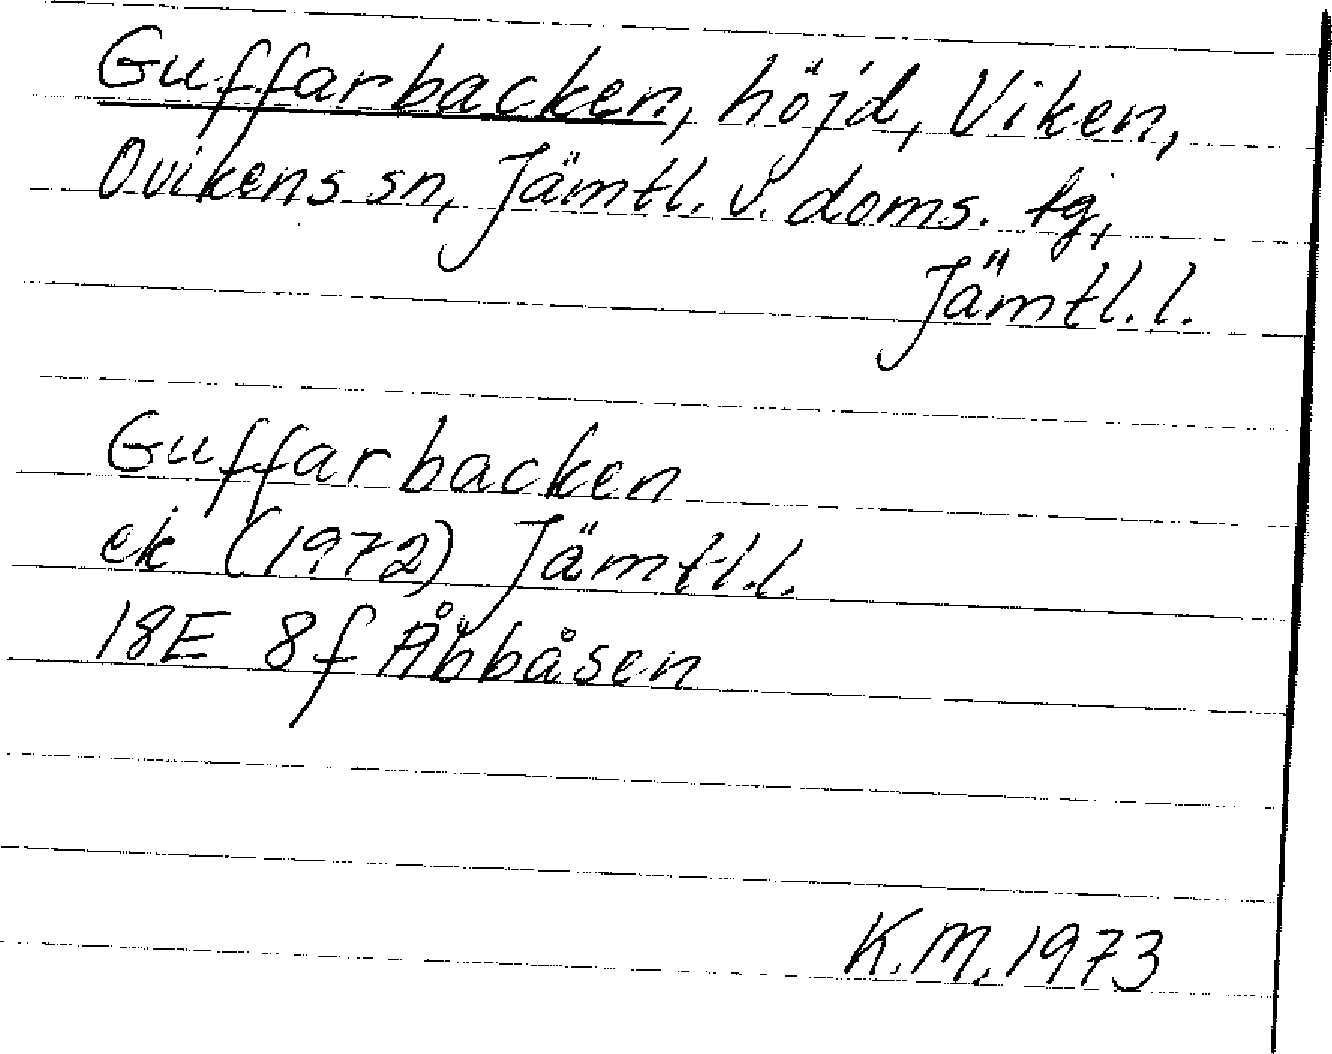 Guffarbacken, höjd, Viken,
Ovikens sn, Jämtl. v. doms. tg,
Jämtl. l.
Guffarbacken
ek (1972) Jämtl.l.
18E 8f Åbbåsen
K.M. 1973